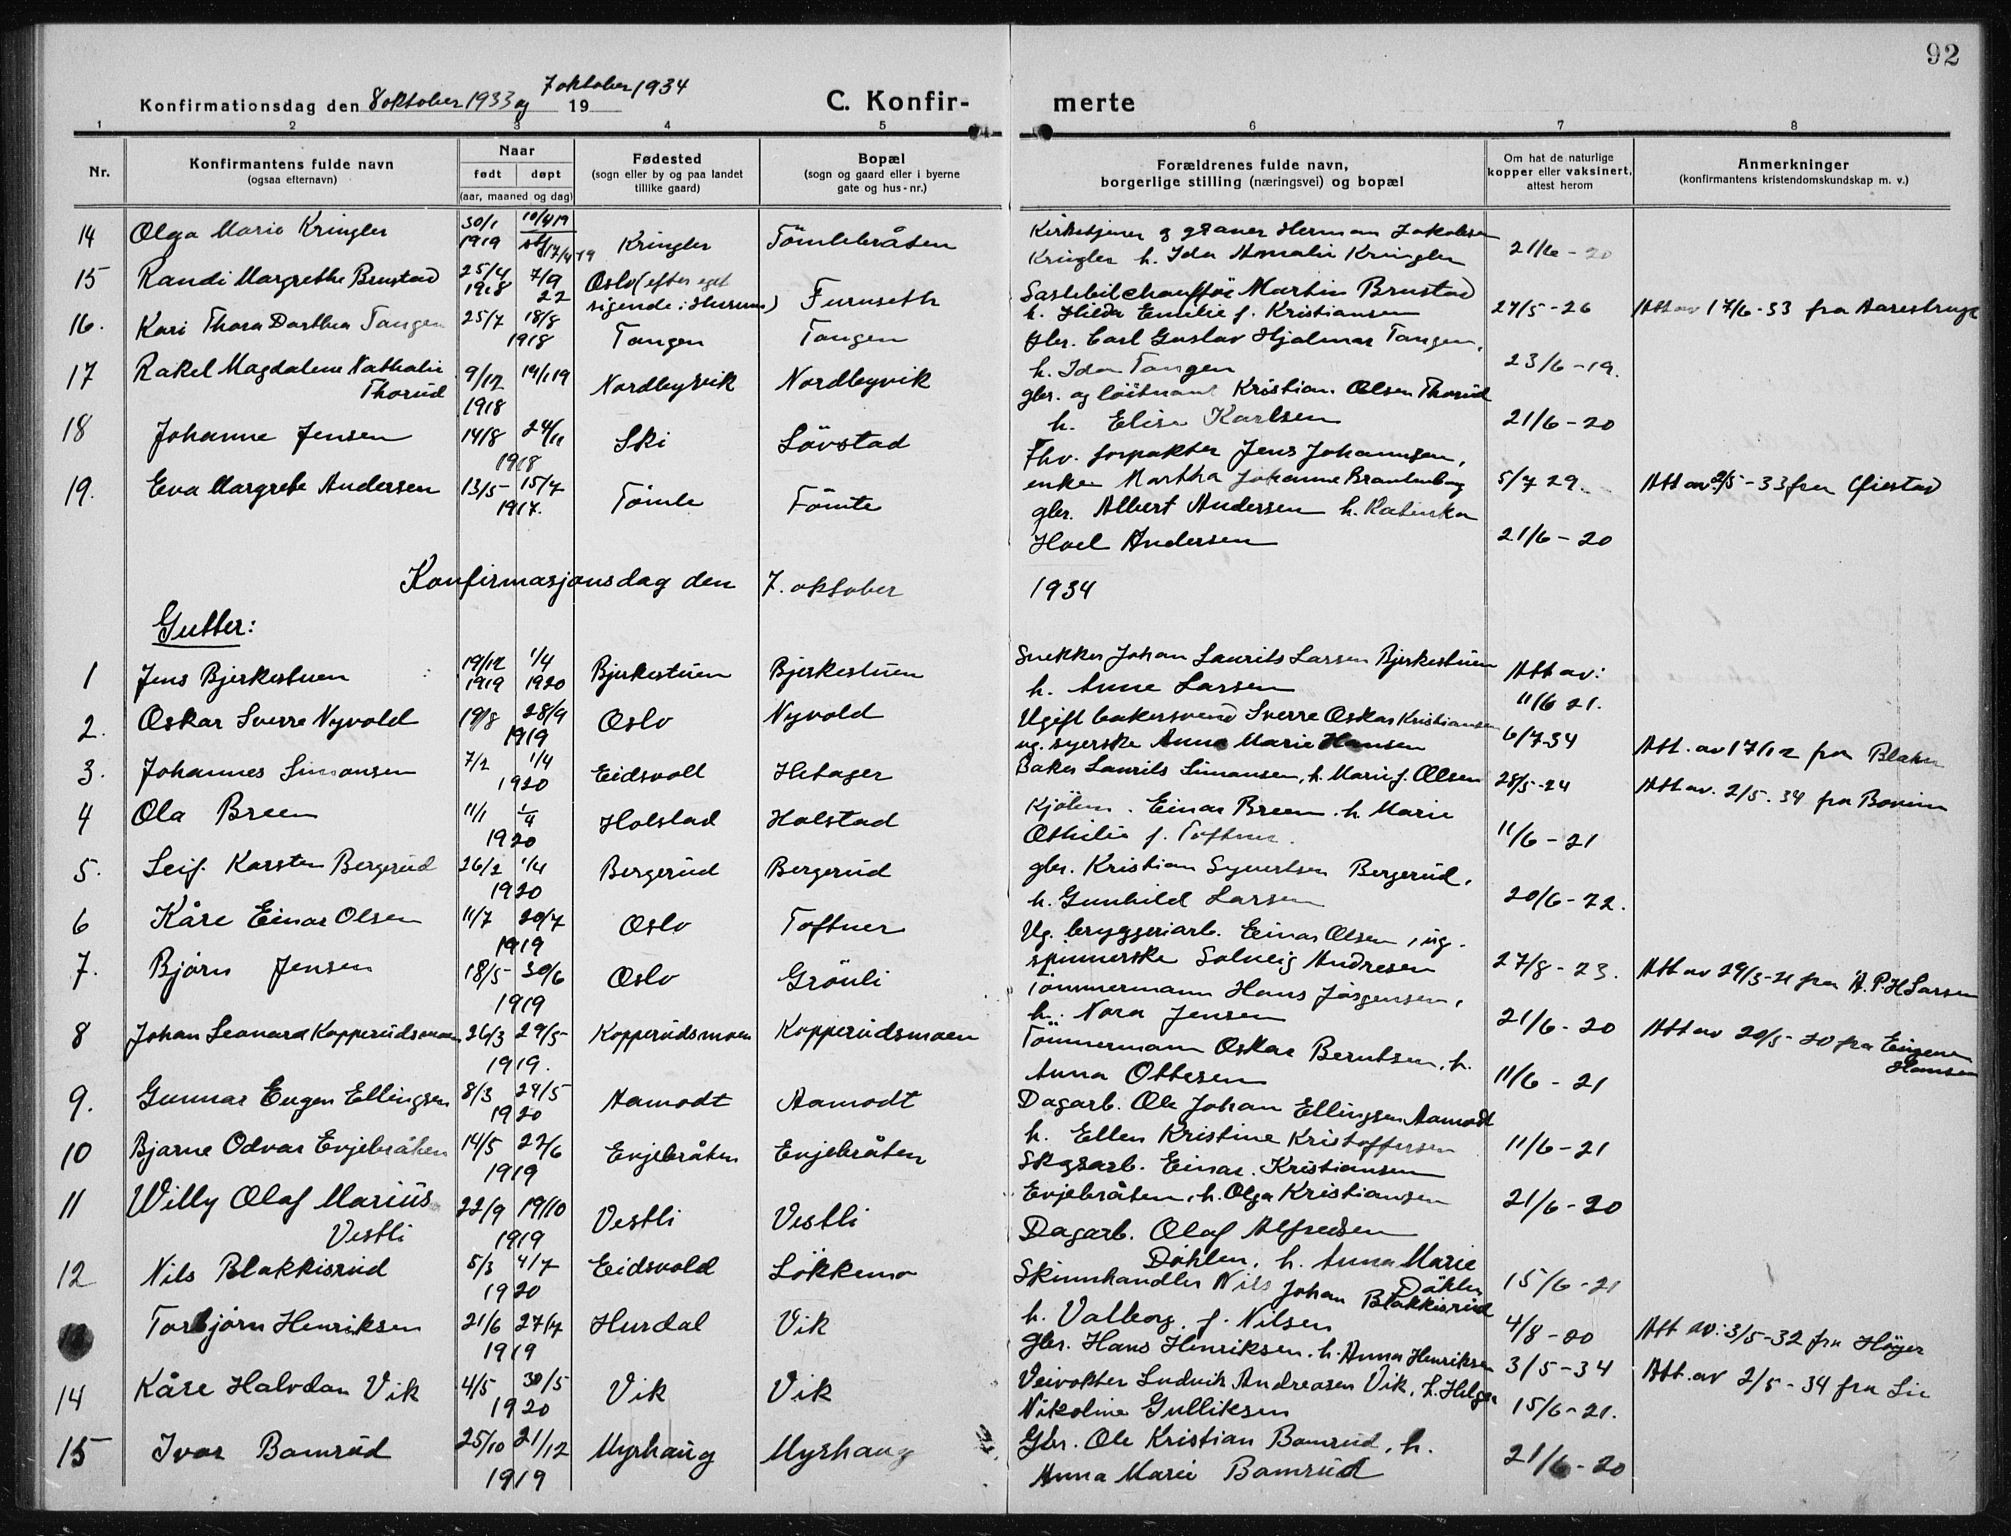 92
Konfirmationsdag den 8 oktober 1933 og 7 oktober 1934 19
C. Konfirmerte
1 2 3 4 5 6 7 8
Nr.
Konfirmantens fulde navn
(ogsaa efternavn)
Naar
født døpt
(aar, maaned og dag)
Fødested
(sogn eller by og paa landet
tillike gaard)
Bopæl
(sogn og gaard eller i byerne
gate og hus-nr.)
Forældrenes fulde navn,
borgerlige stilling (næringsvei) og bopæl
Om hat de naturlige
kopper eller vaksinert,
attest herom
Anmerkninger
(konfirmantens kristendomskundskap m. v.)
14 Olga Marie Kringler 30/1 1919 10/4 19 stf 17/4 19 Kringler Tömtebråten Kirketjener og graver Herman Jakobsen
Kringler h. Ida Amalie Kringler 21/6 - 20
15 Randi Margrethe Brustad 25/4 1918 7/9 22 Oslo (efter eget sigende i Hurum) Furuseth Lastebilchaufför Martin Brustad
h. Hilda Emilie f. Kristiansen 27/5 - 26 Att av 17/6-33 fra Aarestrup
16. Kari Thora Dorthea Tangen 25/7 18/8 1918 Tangen Tangen gbr. Carl Gustav Hjalmar Tangen,
h. Ida Tangen 23/6 - 19.
17 Rakel Magdalene Nathalie Thorud 9/12 1918 19/1 19 Nordbyvik Nordbyvik gbr. og löitnant Kristian Olsen Thorud
h. Elise Karlsen 21/6 - 20
18 Johanne Jensen 14/8 24/11 1918 Ski Lövstad Fhv. forpakter Jens Johannsen,
enke Martha Johanne Brantenberg 5/7 29. Att av 2/5 - 33 fra Öiestad
19. Eva Margrete Andersen 13/5 - 15/7 1917. Tömte Tömte gbr. Albert Andersen h. Katinka
Hoel Andersen 21/6 - 20
Konfirmasjonsdag den 7. oktober 1934
Gutter:
1 Jens Bjerkestuen 19/12 1919 1/4 1920 Bjerkestuen Bjerkestuen Snekker Johan Laurits Larsen Bjerkestuen
h. Anne Larsen Att av: 11/6 21.
2. Oskar Sverre Nyvold 19/8 28/9 1919 Oslo Nyvold Ugift bakersvend Sverre Oskar Kristiansen
ug. syerske Anna Marie Hansen 6/7 34 Att. av 17/12 fra
3. Johannes Simonsen 7/2 1/4 1920 Eidsvoll Hetager Baker Laurits Simonsen, h. Marie f. Olsen 28/5 - 24 Att av. 2/5. 34 fra
4 Ola Breen 11/1 1/4 1920 Holstad Holstad Kjölem. Einar Breen. h. Marie
Othilie f. Toftner. 11/6 - 21
5. Leif Karsten Bergerud 26/2 1/4 1920 Bergerud Bergerud gbr. Kristian Syvertsen Bergerud,
h. Gunhild Larsen 20/6 - 22.
6 Kåre Einar Olsen 11/7 20/7 1919 Oslo Toftner Ug. bryggeriarb. Einar Olsen, ug.
spinnerske Solveig Andresen 27/8 - 23. Att av 29/3 - 21 fra A. P. H Larsen
7. Bjørn Jensen 18/5 - 30/6 1919 Oslo Grönli Tömmermann Hans Jørgensen,
h. Nora Jensen 21/6 - 20 Att av 20/5 - 20 fra Hansen
8 Johan Leonard Kopperudsmoen 26/3 29/5 1919. Kopperudsmoen Kopperudsmoen Tömmermann Oskar Berntsen, h.
Anna Ottesen 11/6 - 21
9. Gunnar Eugen Ellingsen 8/3 24/5 1920 Aamodt Aamodt Dagarb. Ole Johan Ellingsen Aamodt
h. Ellen Kristine Kristoffersen 11/6 - 21
10 Bjarne Odvar Evjebråten 14/5 27/6 1919 Evjebråten Evjebråten Skogsarb. Einar Kristiansen
Evjebråten, h. Olga Kristiansen 21/6 - 20
11 Willy Olaf Marius Vestli 22/9 19/10 1919 Vestli Vestli Dagarb. Olaf Alfredsen
Döhlen, h. Anna Marie Döhlen 15/6 - 21
12 Nils Blakkisrud 5/3 4/7 1920 Eidsvold Lökkemo Skinnhandler Nils Johan Blakkisrud
h. Valborg f. Nilsen 4/8 - 20 Att av: 3/5 - 32 fra Höyer
Torbjörn Henriksen 21/6 27/7 1919 Hurdal Vik gbr. Hans Henriksen. h. Anna Henriksen 3/5 - 34 Att. av 2/5 - 34 fra Lie
14 Kåre Halvdan Vik 4/5 30/5 1920 Vik Vik Veivokter Ludvik Andreasen Vik, h. Helga
Nikoline Gulliksen 15/6 - 21.
15 Ivar Bamrud 25/10 21/12 1919 Myrhaug Myrhaug Gbr. Ole Kristian Bamrud, h.
Anna Marie Bamrud 21/6 - 20